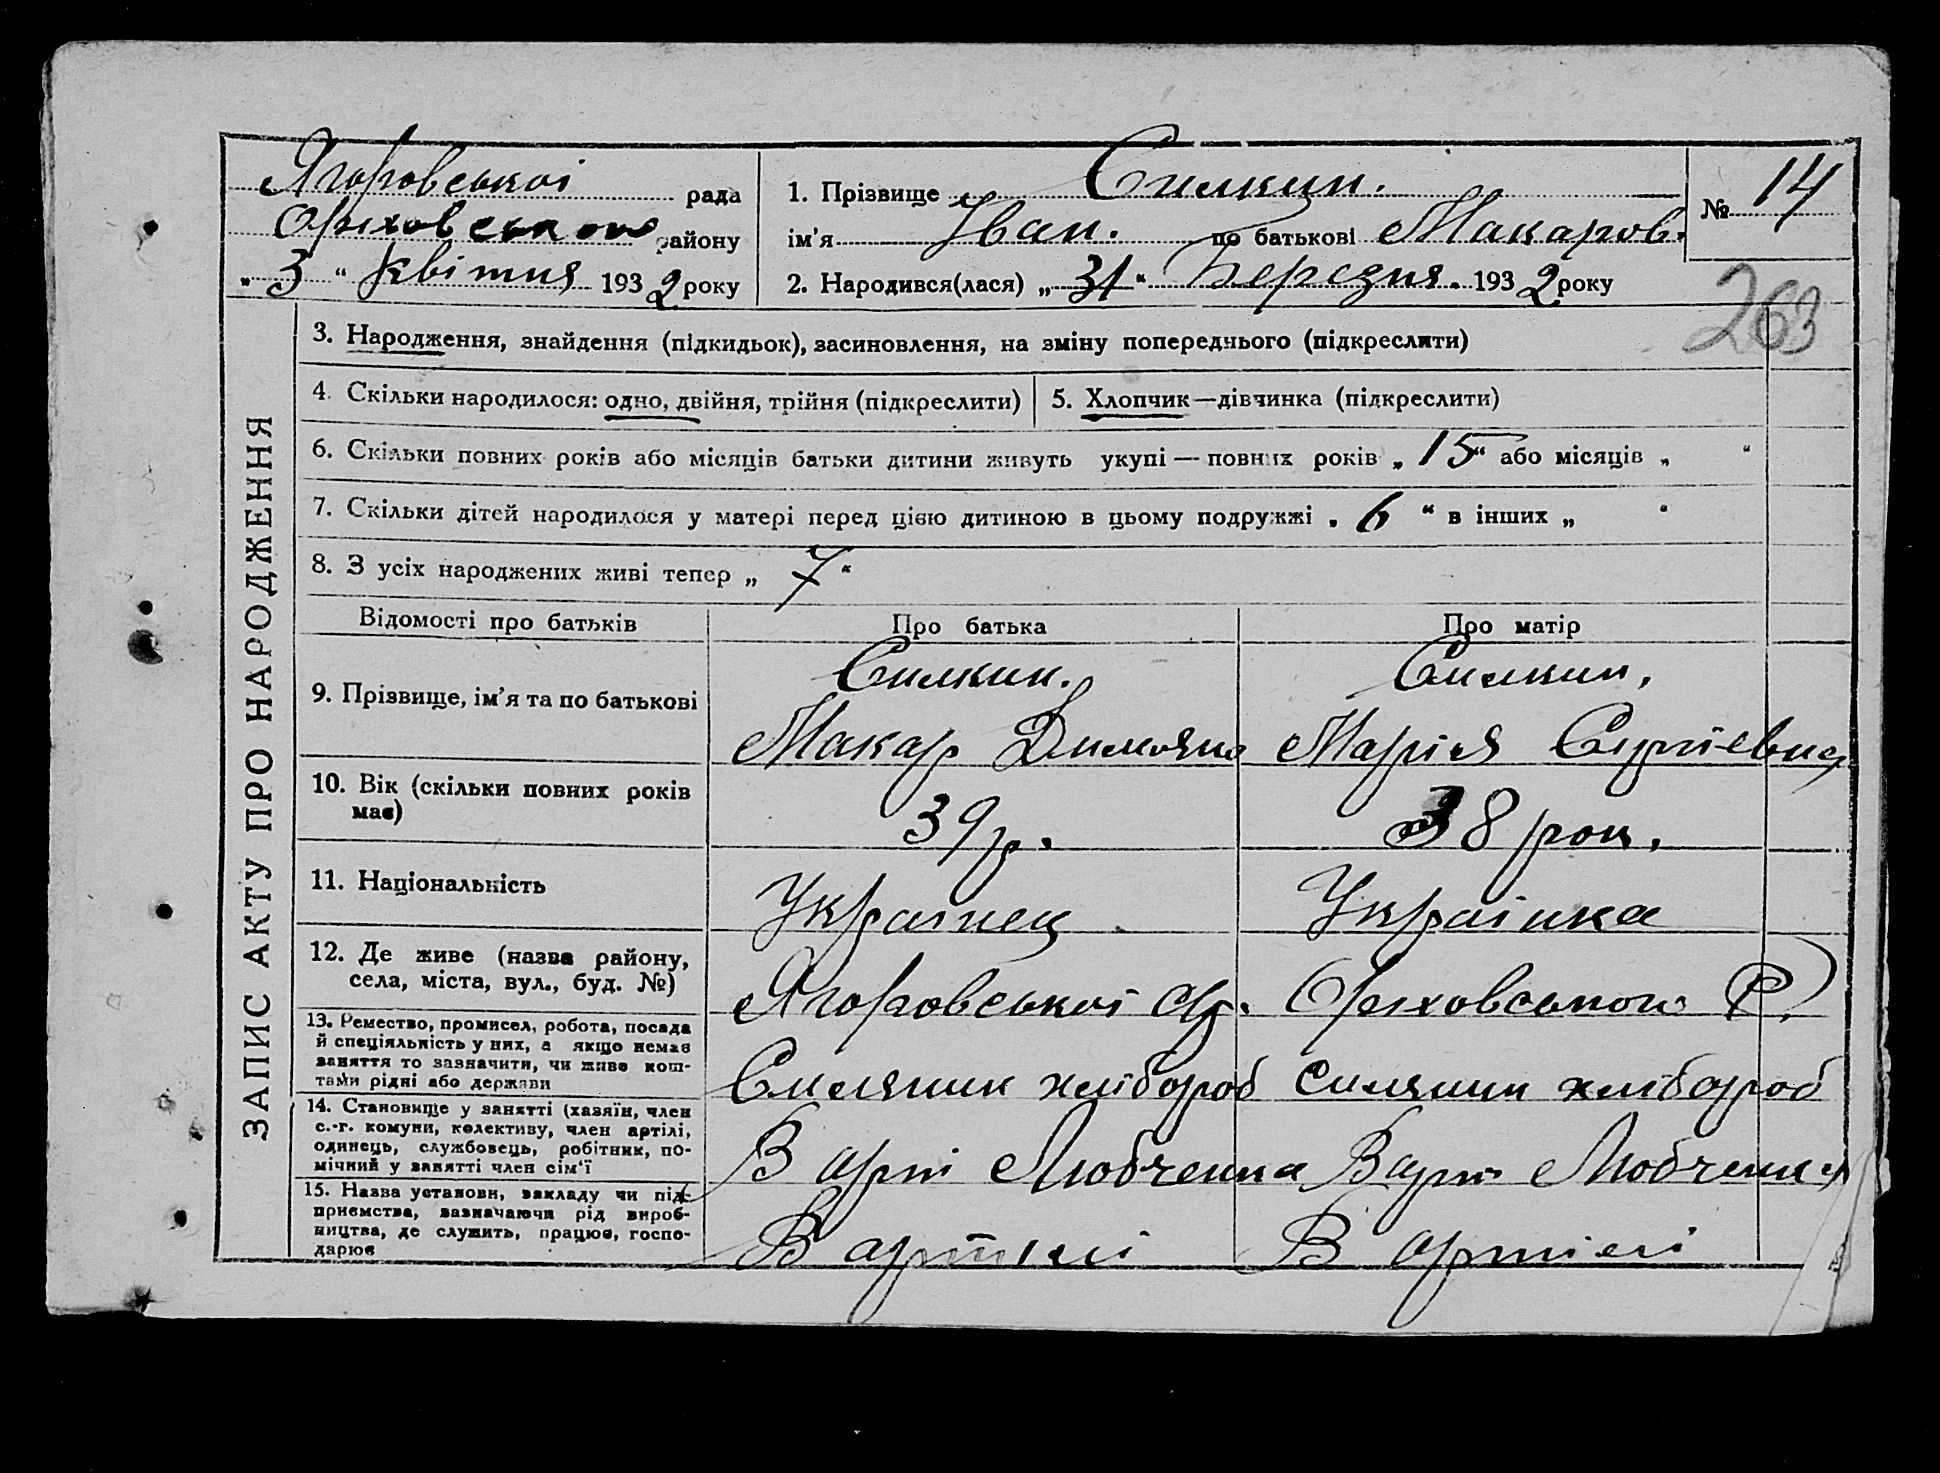 Ягоровської рада
Оріховського району
„ 3 “ Квітня 1932 року
1. Прізвище Силкин.
ім'я Іван. по батькові Макаров.
2. Народився(лася) „ 31 “ Березня. 1932 року
№ 14
263
ЗАПИС АКТУ ПРО НАРОДЖЕННЯ
3. Народження, знайдення (підкидьок), засиновлення, на зміну попереднього (підкреслити)
4. Скільки народилося: одно, двійня, трійня (підкреслити)
5. Хлопчик—дівчинка (підкреслити)
6. Скільки повних років або місяців батьки дитини живуть укупі — повних років „ 15 “ або місяців „ “
7. Скільки дітей народилося у матері перед цією дитиною в цьому подружжі „ 6 “ в інших „ “
8. З усіх народжених живі тепер „ 7 “
Відомості про батьків
Про батька
Про матір
9. Прізвище, ім'я та по батькові
Силкин.
Макар
Силкин,
Марія Сергіевна
10. Вік (скільки повних років
має)
39 р.
38 рок.
11. Національність
Украінец
Украінка
12. Де живе (назва району,
села, міста, вул., буд. №)
Ягоровської с/р. Оріховського Р.
13. Ремество, промисел, робота, посада
й спеціяльність у них, а якщо немає
заняття то зазначити, чи живе кош-
тами рідні або держави
Силянин хлібороб
силянин хлібороб
14. Становище у занятті (хазяїн, член
с.-г. комуни, колективу, член артілі,
одинець, службовець, робітник, по-
мічний у занятті член сім'ї
В арті Любченка
В арті Любченка
15. Назва установи, закладу чи під-
приємства, зазначаючи рід вироб-
ництва, де служить, працює, госпо-
дарює
В артілі
В артілі